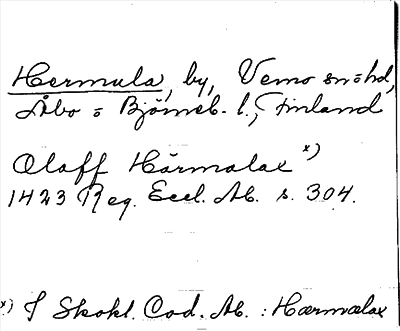 Hermula, by, Vemo sn o hd,
Åbo o Björneb. l., Finland
Olaff Härmalax x)
1423 Reg. Eccl. Ab. s. 304.
x) I Skokl. Cod. Ab. : Hærmælax